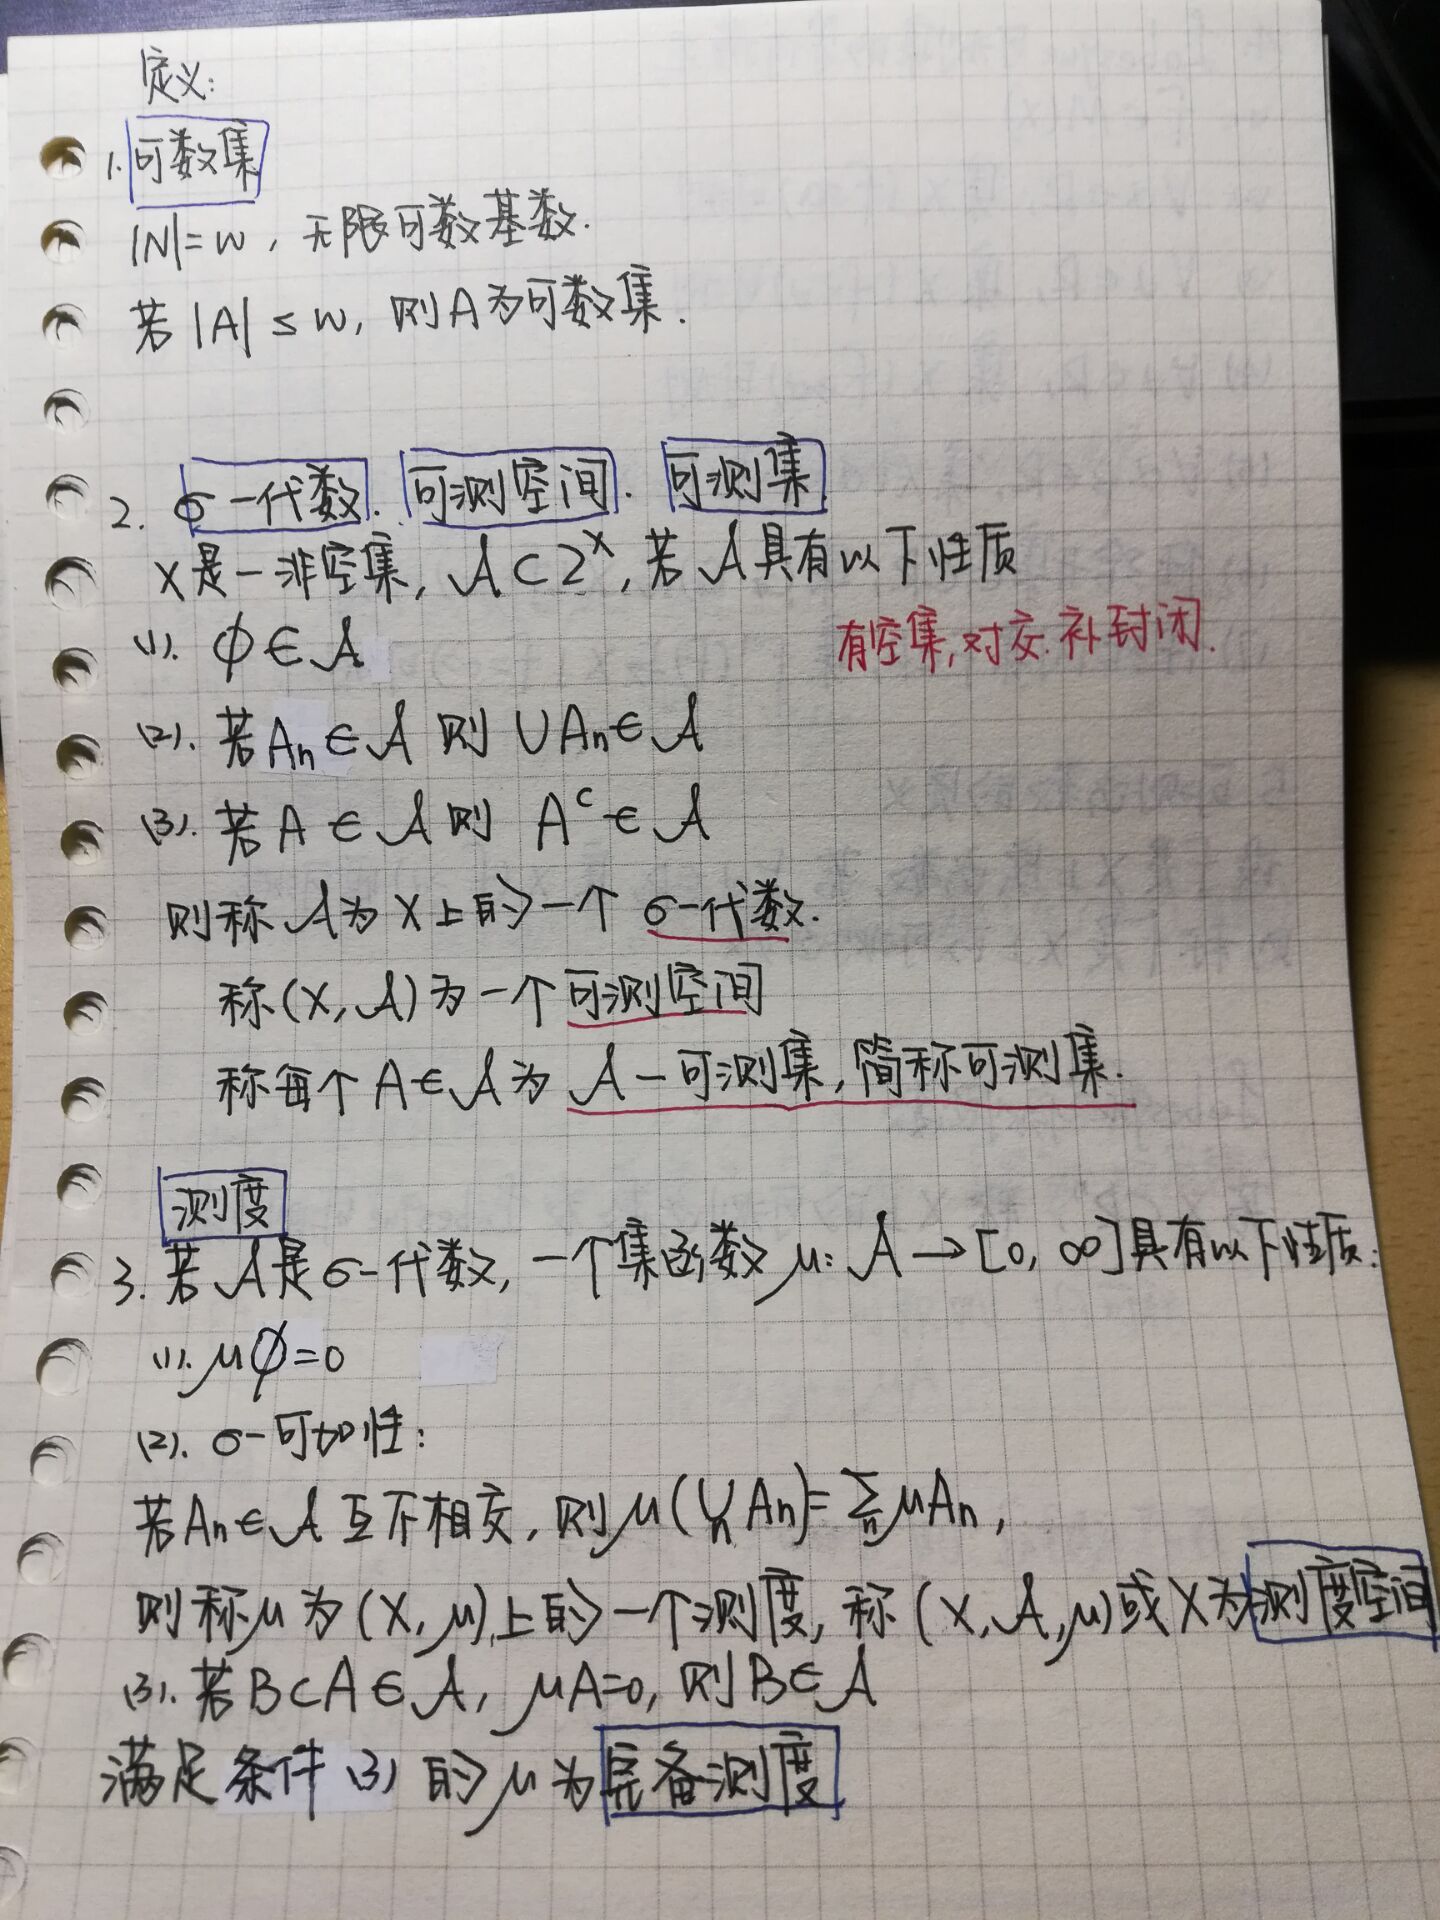 定义:
1. 可数集
|N|=w, 无限可数基数.
若 |A| ≤ w, 则 A 为可数集.
2. σ-代数. 可测空间. 可测集.
X是一非空集, 𝒜⊂2^X, 若 𝒜 具有以下性质
(1). ϕ∈𝒜
有空集, 对交.补封闭.
(2). 若 Aₙ∈𝒜 则 ∪Aₙ∈𝒜
(3). 若 A∈𝒜 则 A^c∈𝒜
则称 𝒜 为 X 上的一个 σ-代数.
称 (X, 𝒜) 为一个可测空间
称每个 A∈𝒜 为 𝒜-可测集, 简称可测集.
测度
3. 若 𝒜 是 σ-代数, 一个集函数 μ: 𝒜→[0, ∞] 具有以下性质:
(1). μϕ=0
(2). σ-可加性:
若 Aₙ∈𝒜 互不相交, 则 μ(∪ₙ Aₙ)=∑ₙ μAₙ,
则称 μ 为 (X, μ) 上的一个测度, 称 (X, 𝒜, μ) 或 X 为测度空间
(3). 若 B⊂A∈𝒜, μA=0, 则 B∈𝒜
满足条件 (3) 的 μ 为完备测度